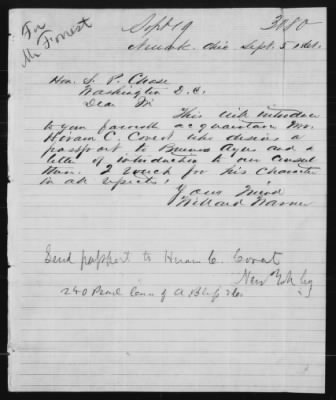 For
Mr Forrest
Sept 19
3080
Newark Ohio Sept. 5
Hon. S. P. Chase
Washington D. C.
Dear Sir
This will introduce
to your favorable acquaintance Mr.
Hiram C. Covert who desires a
passport to Buenos Ayres and a
letter of introduction to our consul
there. I vouch for his character
in all respects.
Your friend
Willard Warner
Send passport to Hiram C. Covert
New York City
240 Pearl